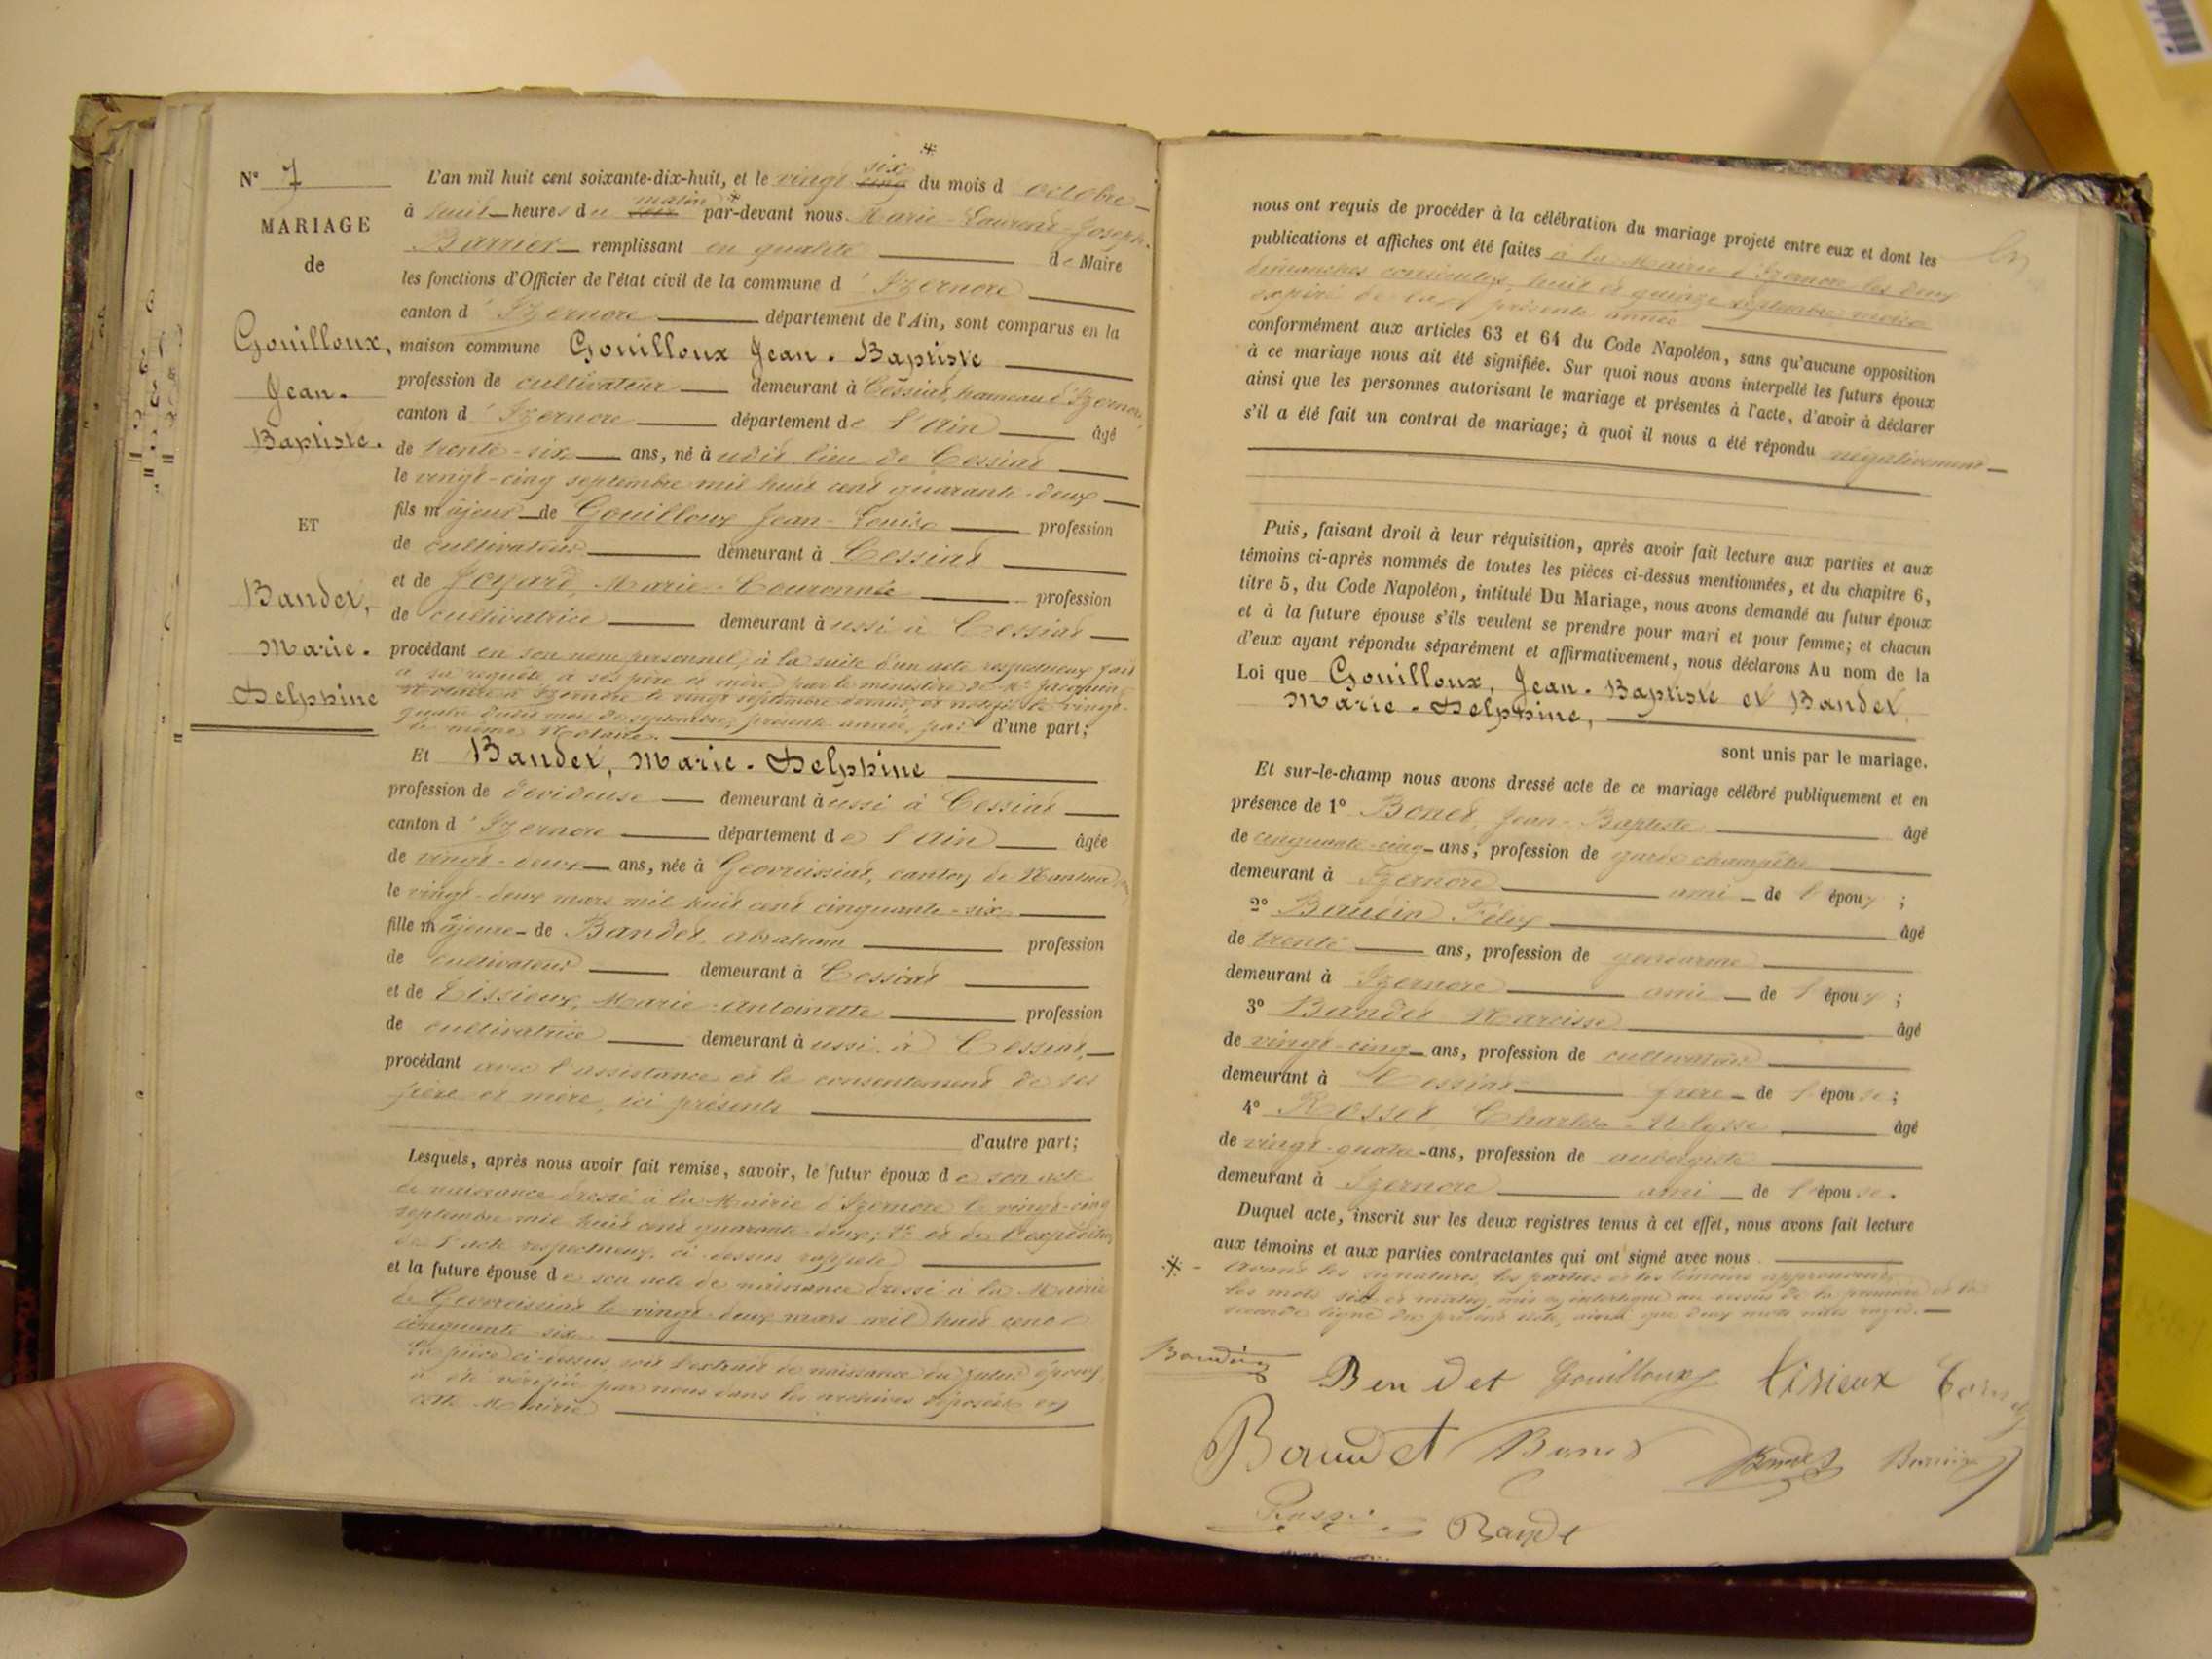 N° 7
MARIAGE
de
Gouilloux,
Jean-
Baptiste.
ET
Bandet,
Marie-
Delphine
L'an mil huit cent soixante-dix-huit, et le vingt six cinq du mois d octobre
à huit heures du matin soir par-devant nous Marie-Laurent-Joseph
Barrier remplissant en qualité de Maire
les fonctions d'Officier de l'état civil de la commune d'Izernore
canton d'Izernore département de l'Ain, sont comparus en la
maison commune Gouilloux Jean-Baptiste
profession de cultivateur demeurant à Cessiat, hameau d'Izernore,
canton d'Izernore département de l'Ain âgé
de trente-six ans, né audit lieu de Cessiat
le vingt-cinq septembre mil huit cent quarante-deux
fils majeur de Gouilloux Jean-Louis profession
de cultivateur demeurant à Cessiat
et de Joyard, Marie-Couronnée profession
de cultivatrice demeurant aussi à Cessiat
procédant en son nom personnel, à la suite d'un acte respectueux fait
à sa requête à ses père et mère par le ministère de Me Jacquin
Notaire à Izernore le vingt septembre dernier, et notifié le vingt-
quatre dudit mois de septembre, présente année, par
le même Notaire. d'une part;
Et Bandet, Marie-Delphine
profession de dévideuse demeurant aussi à Cessiat
canton d'Izernore département de l'Ain âgée
de vingt-deux ans, née à Geovreissiat, canton de Nantua,
le vingt-deux mars mil huit cent cinquante-six
fille majeure de Bandet, Abraham profession
de cultivateur demeurant à Cessiat
et de Tissieux, Marie-Antoinette profession
de cultivatrice demeurant aussi à Cessiat,
procédant avec l'assistance et le consentement de ses
père et mère, ici présents
d'autre part;
Lesquels, après nous avoir fait remise, savoir, le futur époux de son acte
de naissance dressé à la Mairie d'Izernore le vingt-cinq
septembre mil huit cent quarante-deux; et de l'expédition
de l'acte respectueux ci-dessus rappelé
et la future épouse de son acte de naissance dressé à la Mairie
de Geovreissiat le vingt-deux mars mil huit cent
cinquante-six
La pièce ci-dessus, soit l'extrait de naissance du futur époux
a été vérifiée par nous dans les archives déposées en
cette Mairie
nous ont requis de procéder à la célébration du mariage projeté entre eux et dont les
publications et affiches ont été faites à la Mairie d'Izernore les deux
dimanches consécutifs, huit et quinze septembre mois
expiré de la présente année
conformément aux articles 63 et 64 du Code Napoléon, sans qu'aucune opposition
à ce mariage nous ait été signifiée. Sur quoi nous avons interpellé les futurs époux
ainsi que les personnes autorisant le mariage et présentes à l'acte, d'avoir à déclarer
s'il a été fait un contrat de mariage; à quoi il nous a été répondu négativement
Puis, faisant droit à leur réquisition, après avoir fait lecture aux parties et aux
témoins ci-après nommés de toutes les pièces ci-dessus mentionnées, et du chapitre 6,
titre 5, du Code Napoléon, intitulé Du Mariage, nous avons demandé au futur époux
et à la future épouse s'ils veulent se prendre pour mari et pour femme; et chacun
d'eux ayant répondu séparément et affirmativement, nous déclarons Au nom de la
Loi que Gouilloux, Jean-Baptiste et Bandet,
Marie-Delphine,
sont unis par le mariage.
Et sur-le-champ nous avons dressé acte de ce mariage célébré publiquement et en
présence de 1° Bonet, Jean-Baptiste âgé
de cinquante-cinq ans, profession de garde champêtre
demeurant à Izernore ami de l'époux ;
2° Baudin Félix âgé
de trente ans, profession de gendarme
demeurant à Izernore ami de l'époux ;
3° Bandet Narcisse âgé
de vingt-cinq ans, profession de cultivateur
demeurant à Cessiat frère de l'épouse ;
4° Rosset Charles-Ulysse âgé
de vingt-quatre ans, profession de aubergiste
demeurant à Izernore ami de l'épouse.
Duquel acte, inscrit sur les deux registres tenus à cet effet, nous avons fait lecture
aux témoins et aux parties contractantes qui ont signé avec nous
Avant les signatures, les parties et les témoins approuvent
les mots six et matin, mis en interligne au-dessus de la première et la
seconde ligne du présent acte, ainsi que deux mots nuls rayés.
Baudin Bendet Gouilloux tisieux
Baudet Bonet Bandet
Bandet